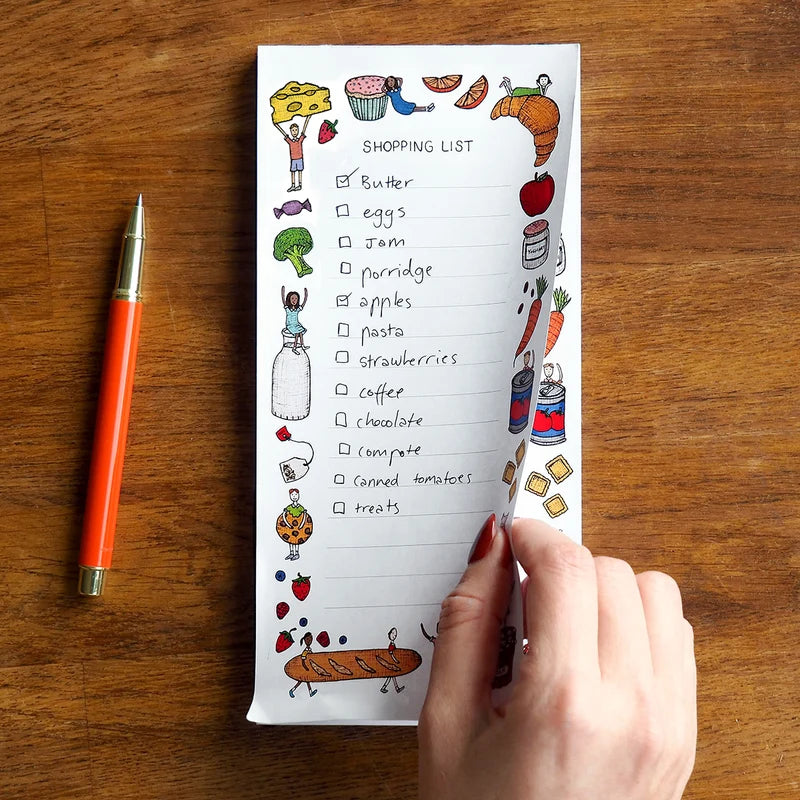 SHOPPING LIST
Butter
eggs
Jam
porridge
apples
pasta
strawberries
coffee
chocolate
compote
canned tomatoes
treats